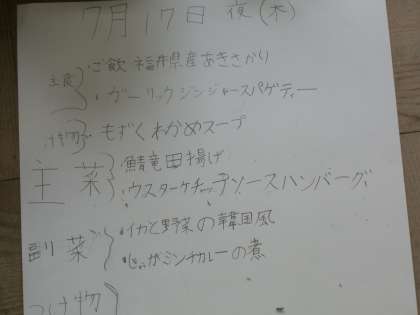 7月17日 夜(木)
主食 ご飯 福井県産あきさかり
ガーリックジンジャースパゲティー
汁物 もずくわかめスープ
主菜 鯖竜田揚げ
ウスターケチャップソースハンバーグ
副菜 イカと野菜の韓国風
じゃがミンチカレーの煮
つけ物